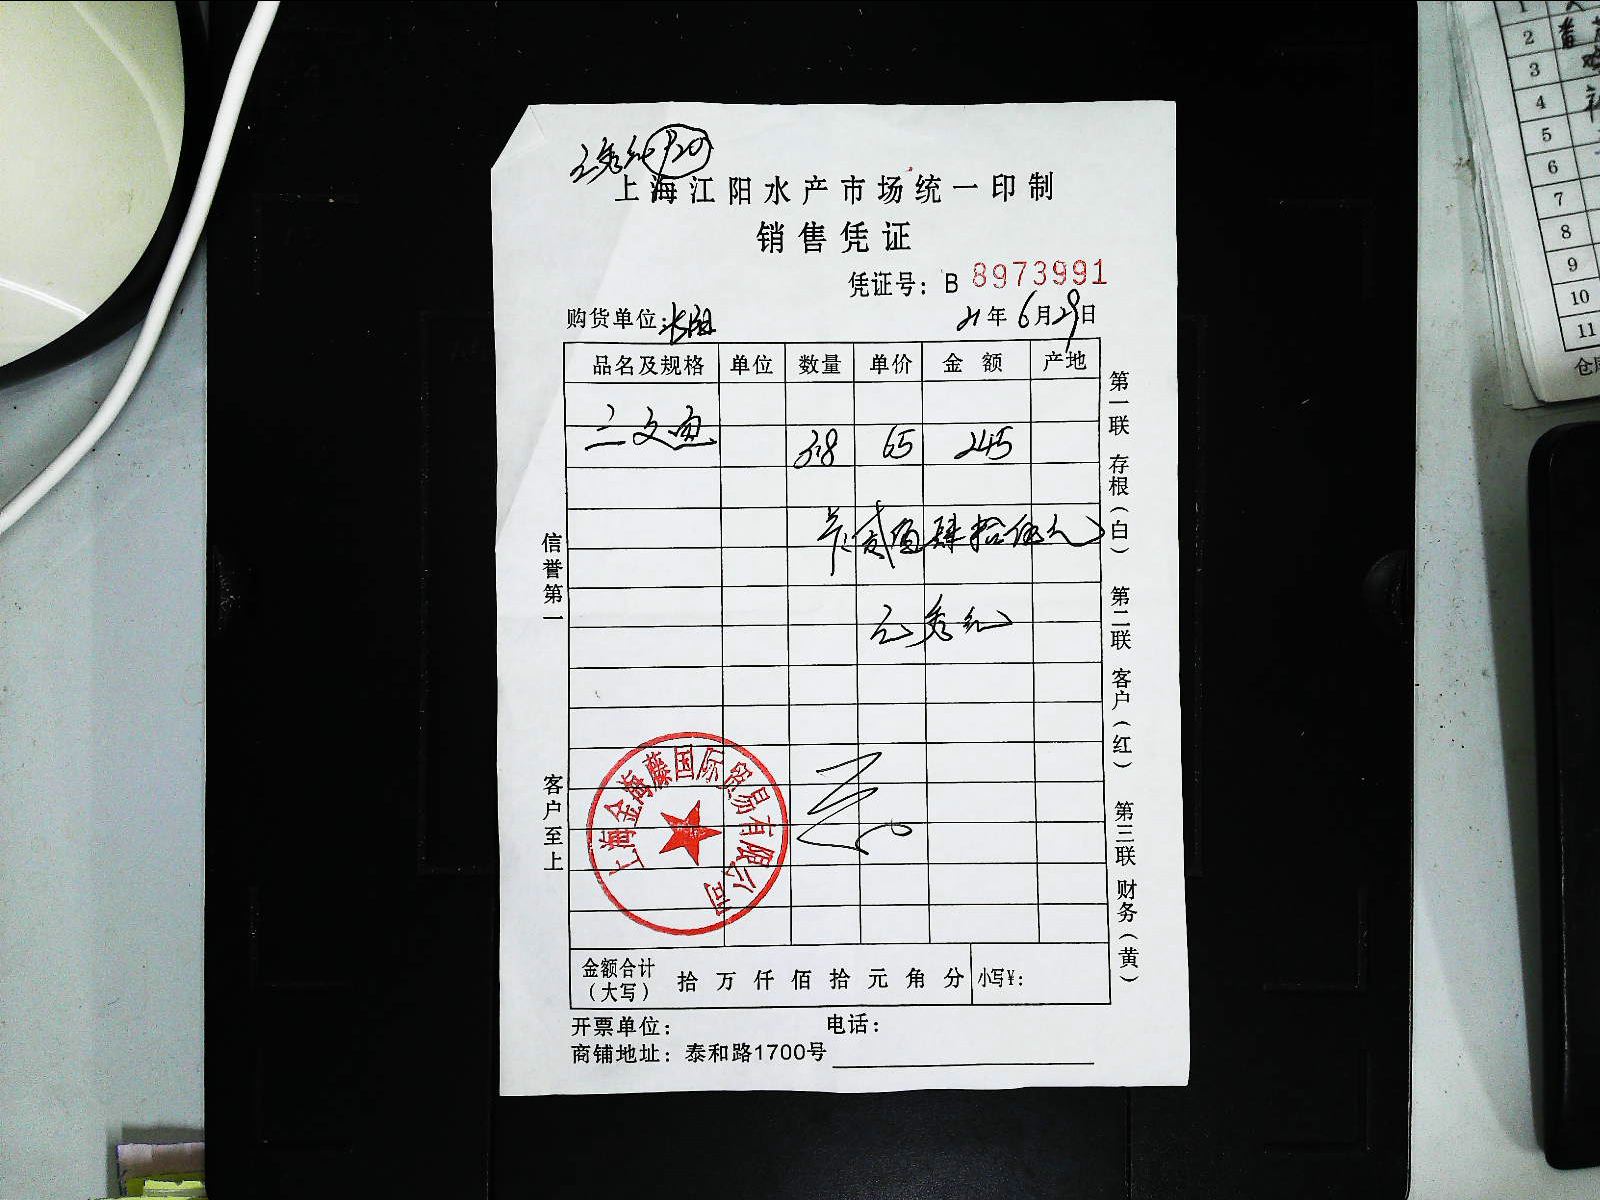 上海江阳水产市场统一印制
销售凭证
凭证号：B 8973991
购货单位：
21年6月29日
品名及规格 单位 数量 单价 金额 产地
三文鱼 3.8 65 245
贰佰肆拾伍元
信誉第一
客户至上
第一联 存根（白） 第二联 客户（红） 第三联 财务（黄）
上海金海藤国际贸易有限公司
金额合计（大写） 拾 万 仟 佰 拾 元 角 分 小写¥：
开票单位： 电话：
商铺地址：泰和路1700号
1
2
3
4
5
6
7
8
9
10
11